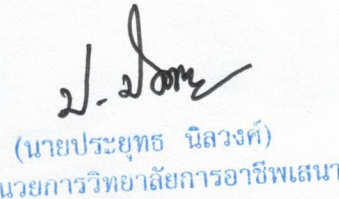 (นายประยุทธ นิลวงศ์)
นวยการวิทยาลัยการอาชีพเสนา